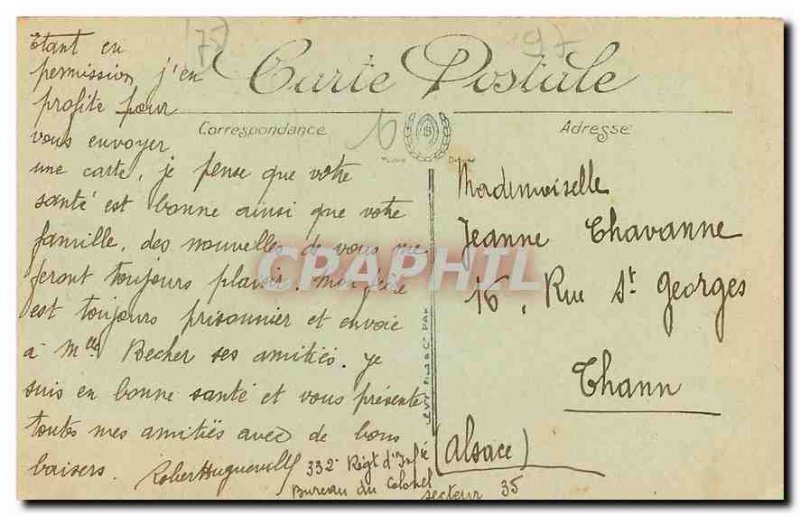 75
97
Carte Postale
Correspondance
Adresse
Etant en
permission, j'en
profite pour
vous envoyer
une carte, je pense que votre
santé est bonne ainsi que votre
famille, des nouvelles de vous me
feront toujours plaisir. Mon frère
est toujours prisonnier et envoie
à Melle Becher ses amitiés. Je
suis en bonne santé et vous présente
toutes mes amitiés avec de bons
baisers.
332e Régt d'Infie
Bureau du Colonel
secteur 35
Mademoiselle
Jeanne Chavanne
16, Rue St Georges
Thann
(Alsace)
CPARHIL